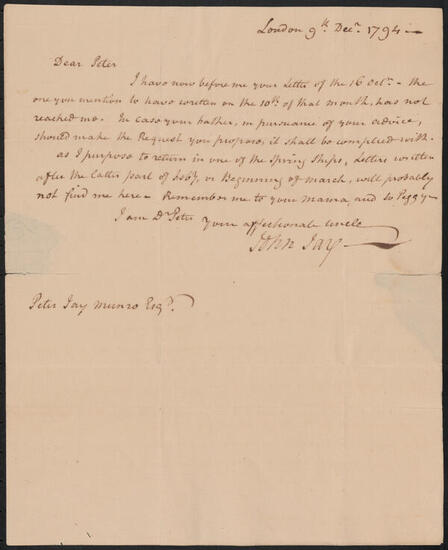 London 9th. Decr. 1794 —
Dear Peter
I have now before me your Letter of the 16 Octr. – the
one you mention to have written on the 10th. of that month, has not
reached me. In case your Father, in pursuance of your advice,
should make the Request you propose, it shall be complied with.
as I purpose to return in one of the Spring Ships, Letters written
after the latter part of Feby, or Beginning of march, will probably
not find me here – Remember me to your Mama, and to Peggy –
I am Dr. Peter your affectionate uncle
John Jay —
Peter Jay Munro Esqr.